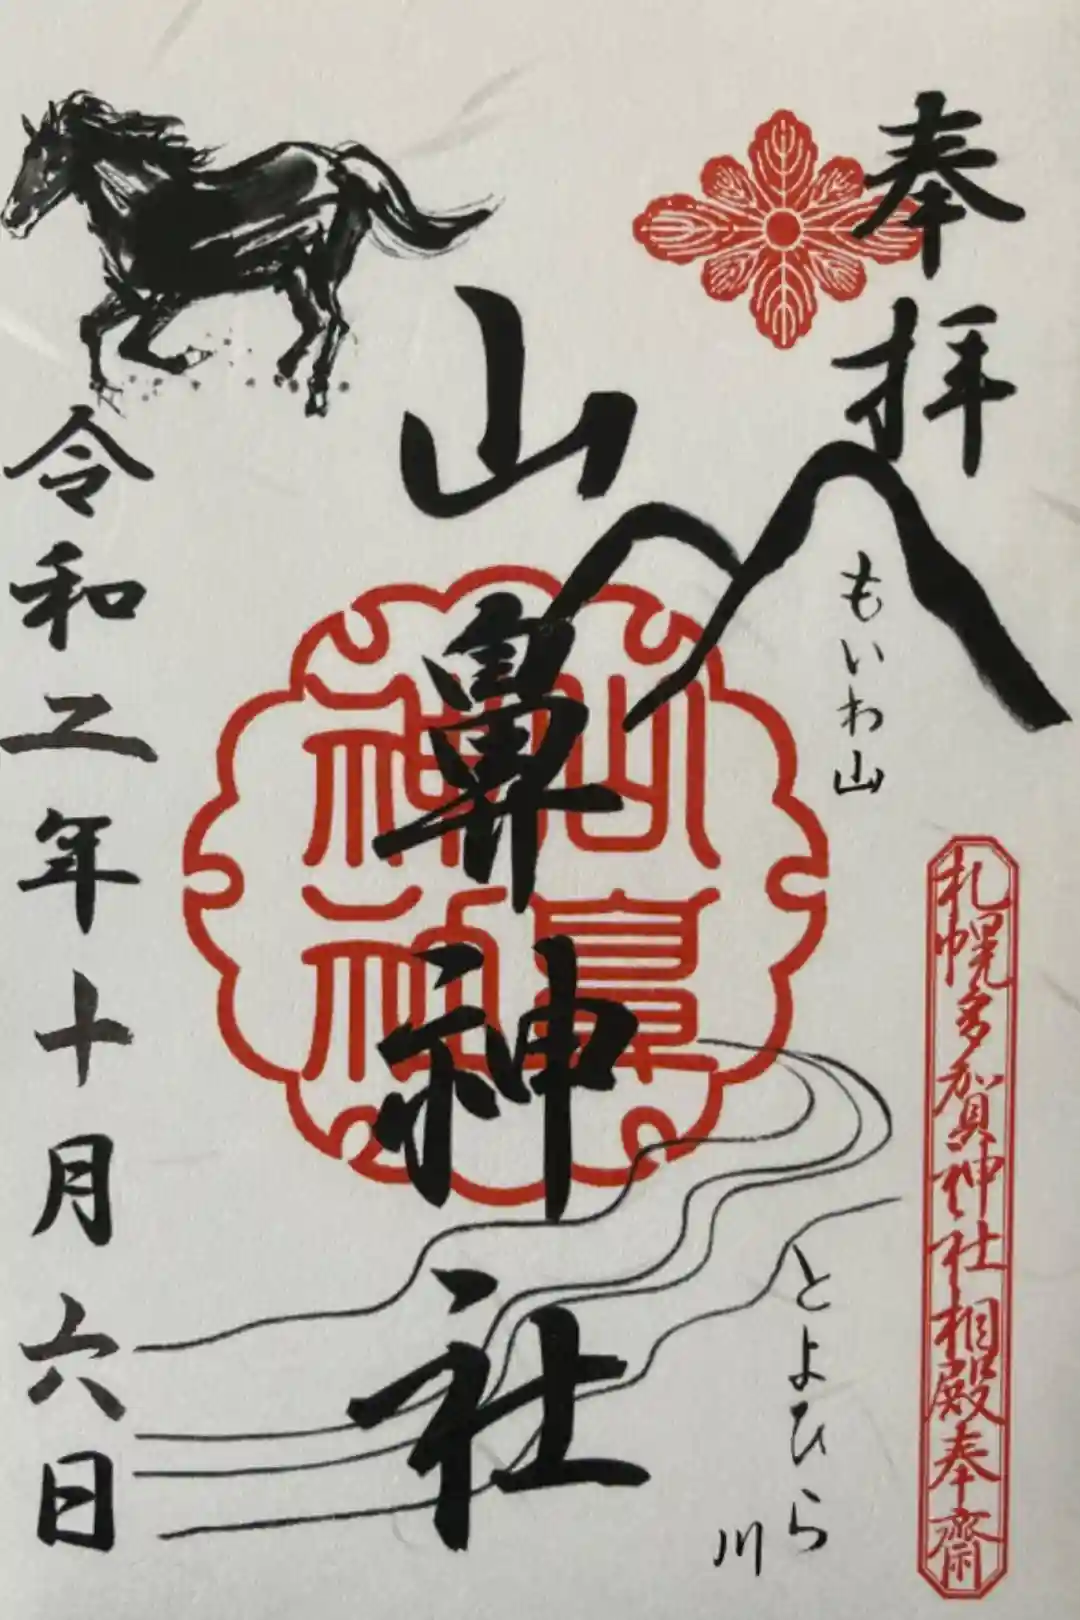 奉拝
もいわ山
札幌多賀神社相殿奉齋
山鼻神社
山鼻
神社
とよひら
川
令和二年十月六日